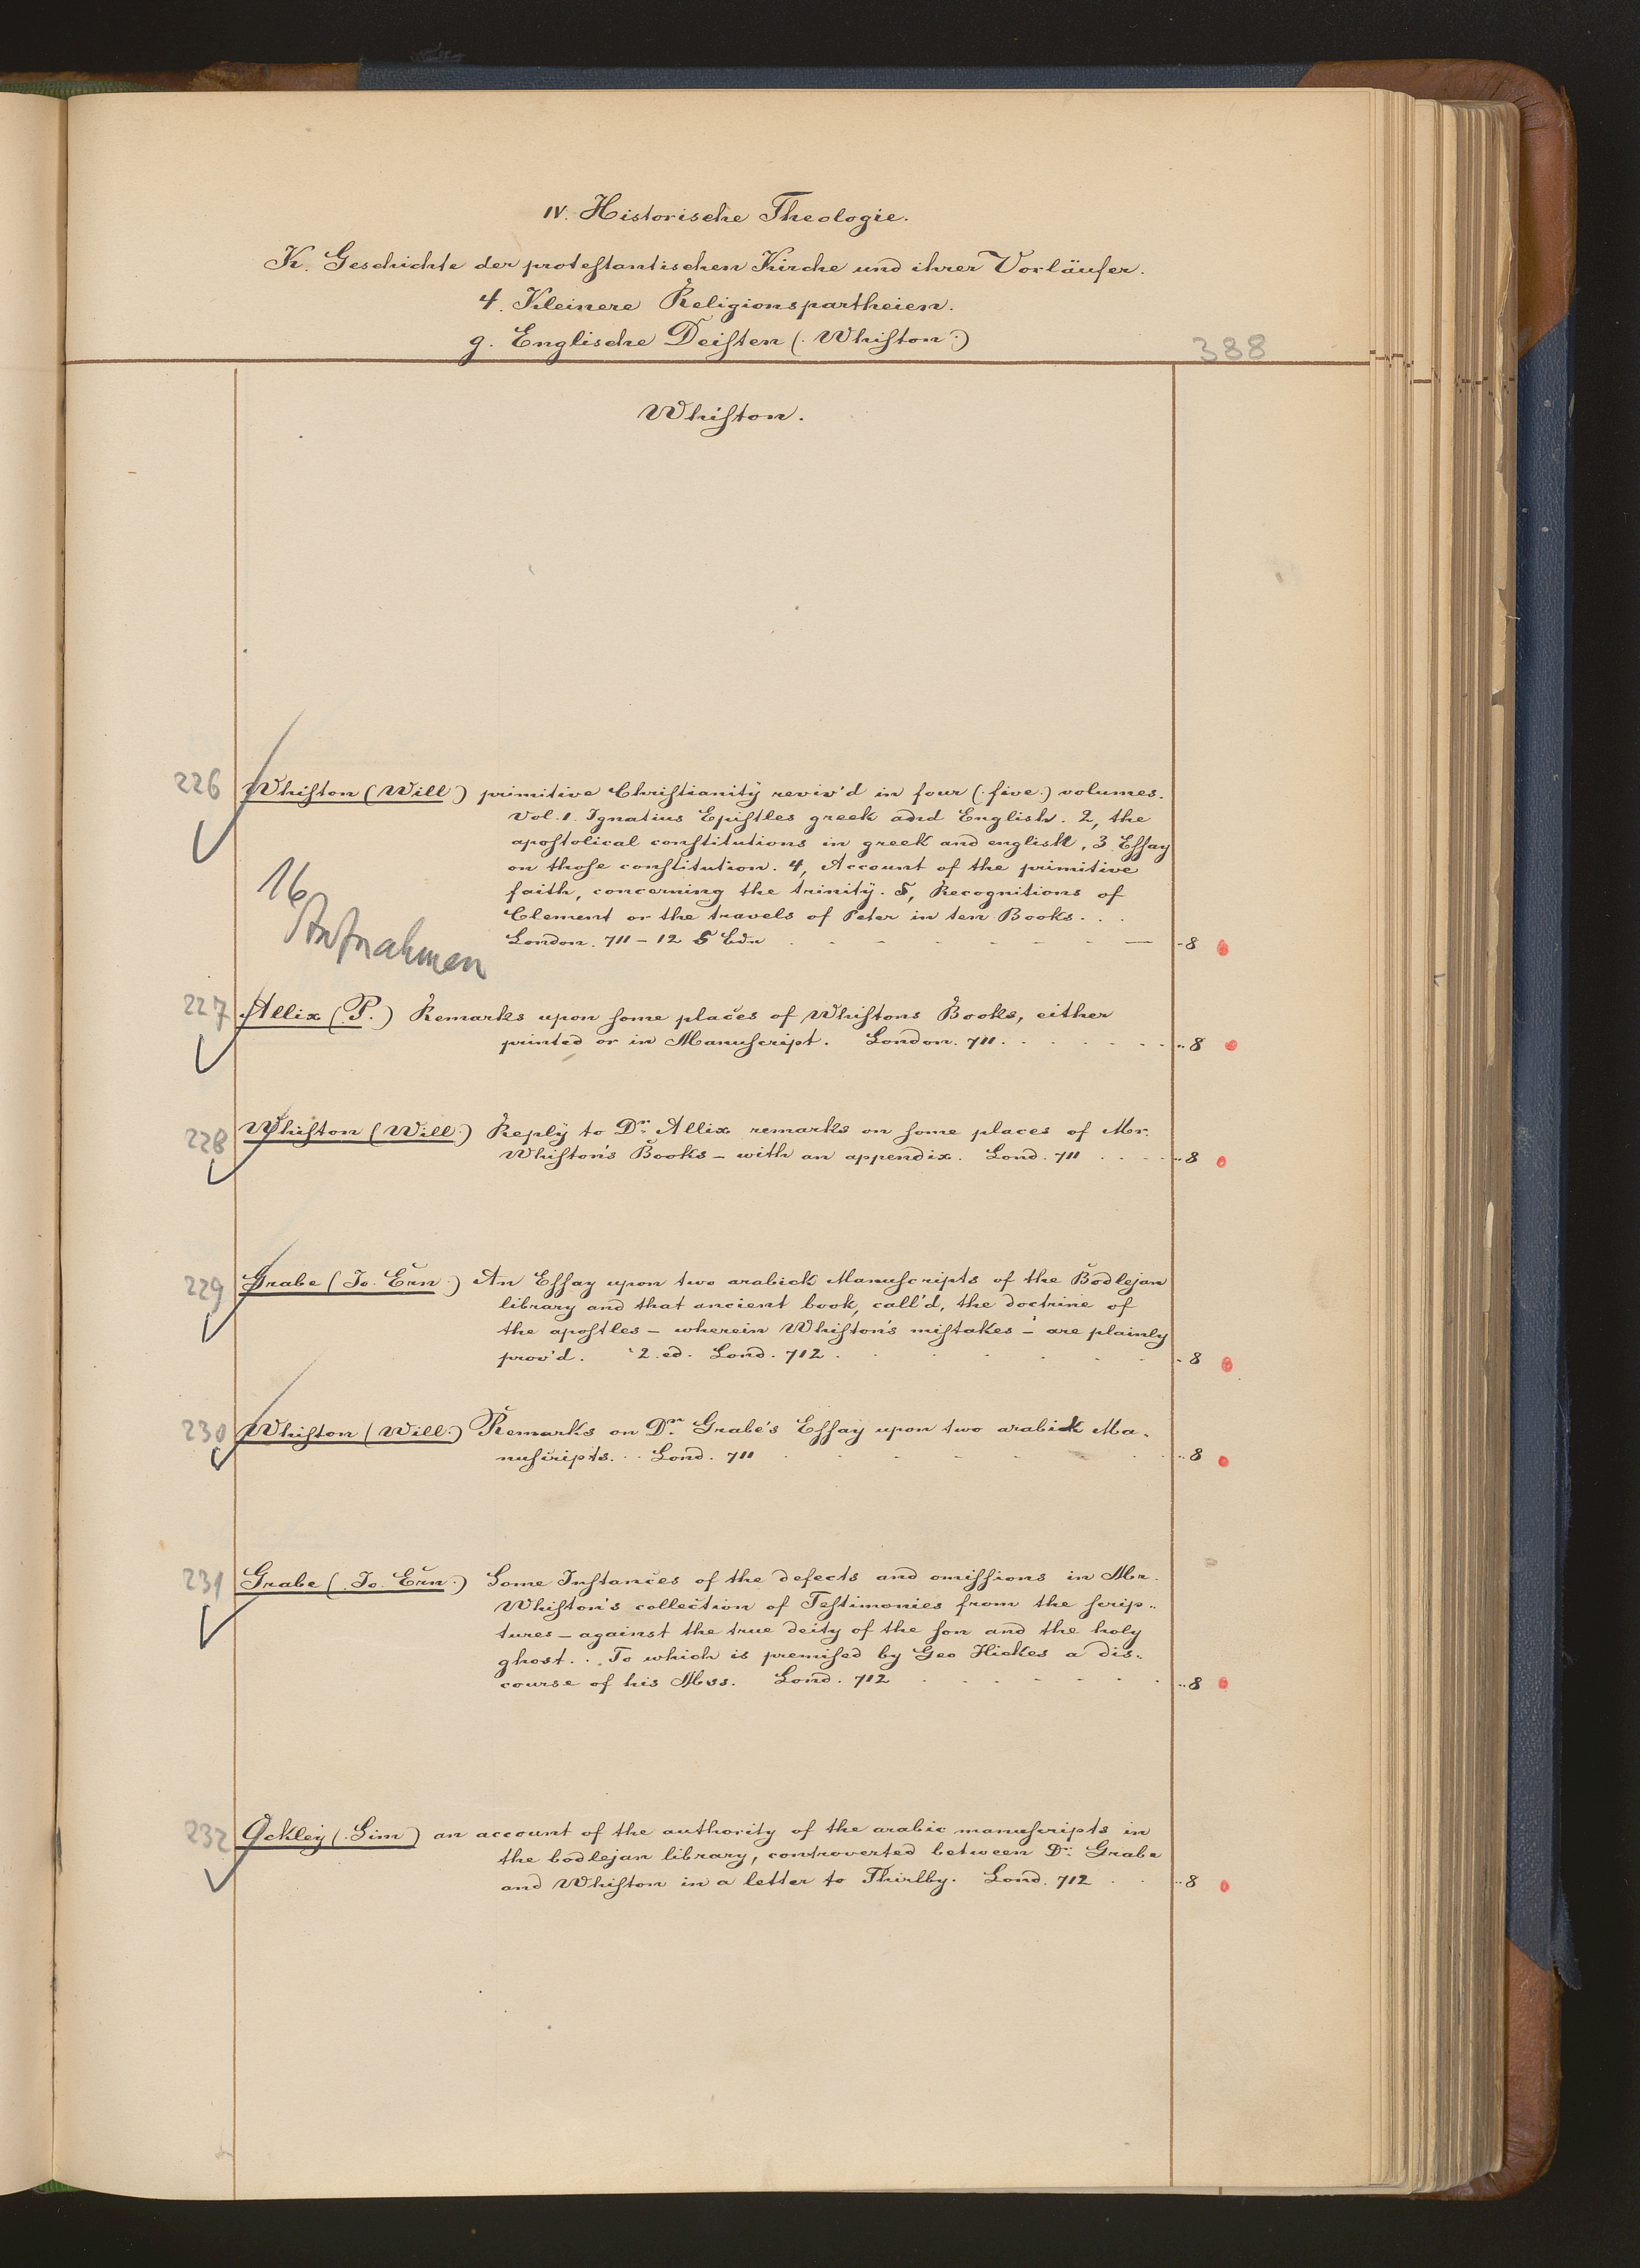 IV. Historische Theologie.
K. Geschichte der protestantischen Kirche und ihrer Vorläufer.
4. Kleinere Religionspartheien.
g. Englische Deisten (Whiston)
388
Whiston.
226 Whiston (Will) primitive Christianity reviv'd in four (five) volumes.
Vol. 1. Ignatius Epistles greek and English. 2, the
apostolical constitutions in greek and english, 3 Essay
on those constitution. 4, Account of the primitive
faith, concerning the trinity. 5, Recognitions of
Clement or the travels of Peter in ten Books. . .
London. 711 - 12 5 Bde - 8
16
Aufnahmen
227 Allix (P.) Remarks upon some places of Whistons Books, either
printed or in Manuscript. London. 711. . . . . . . .. 8
228 Whiston (Will) Reply to Dr. Allix remarks on some places of Mr.
Whiston's Books - with an appendix. Lond. 711 . . . .. 8
229 Grabe (Jo. Ern.) An Essay upon two arabick Manuscripts of the Bodlejan
library and that ancient book, call'd, the doctrine of
the apostles - wherein Whiston's mistakes - are plainly
prov'd. 2. ed. Lond. 712 . . . . . - 8
230 Whiston (Will.) Remarks on Dr. Grabe's Essay upon two arabick Ma-
nuscripts. . . Lond. 711 . . . . . .. 8
231 Grabe (Jo. Ern.) Some Instances of the defects and omissions in Mr.
Whiston's collection of Testimonies from the scrip-
tures - against the true deity of the son and the holy
ghost. . . To which is premised by Geo Hickes a dis-
course of his Mss. Lond. 712 . . . . . .. 8
232 Ockley (Sim) an account of the authority of the arabic manuscripts in
the bodlejan library, controverted between Dr. Grabe
and Whiston in a letter to Thirlby. Lond. 712 . . .. 8